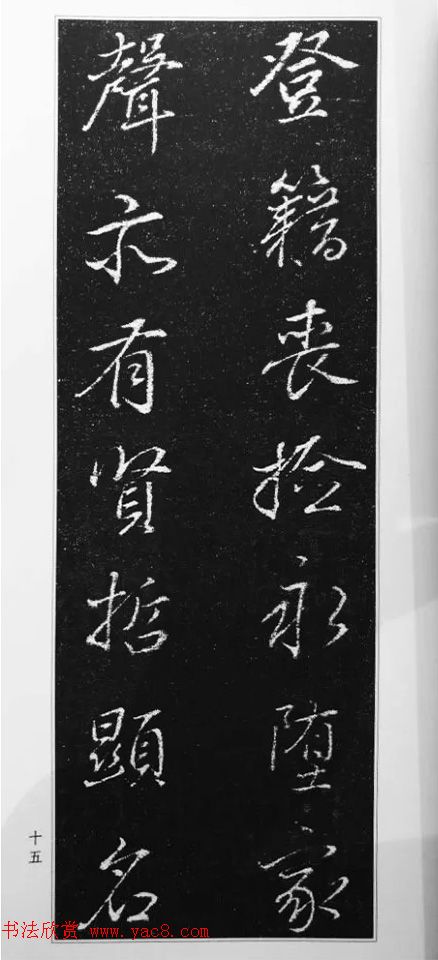 登籍喪撿永堕家
聲亦有賢哲顯名
十五
书法欣赏 www.yac8.com